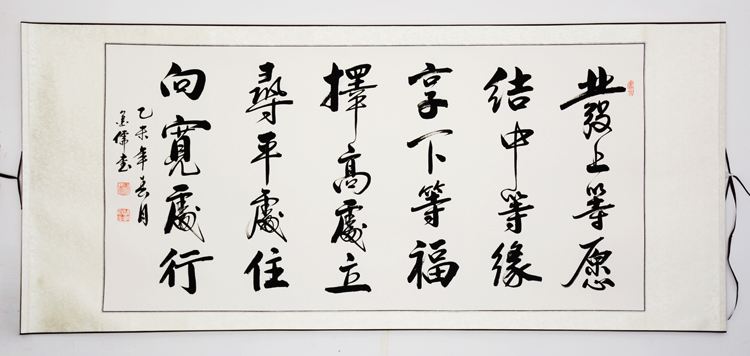 發上等愿
結中等緣
享下等福
擇高處立
尋平處住
向寬處行
乙未年春月
書